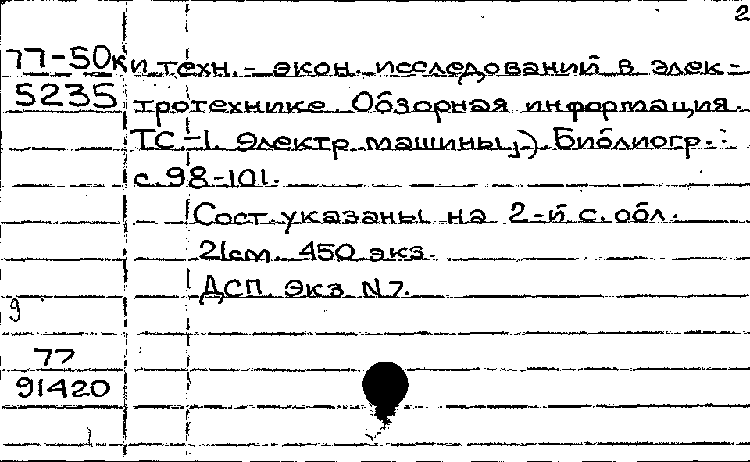 2
77-50к и техн.- экон. исследований в элек-
5235 тротехнике. Обзорная информация.
ТС-1. Электр. машины;). Библиогр.:
с. 98-101.
Сост. указаны на 2-й с. обл.
21см. 450 экз.
ДСП. Экз. N7.
9
77
91420